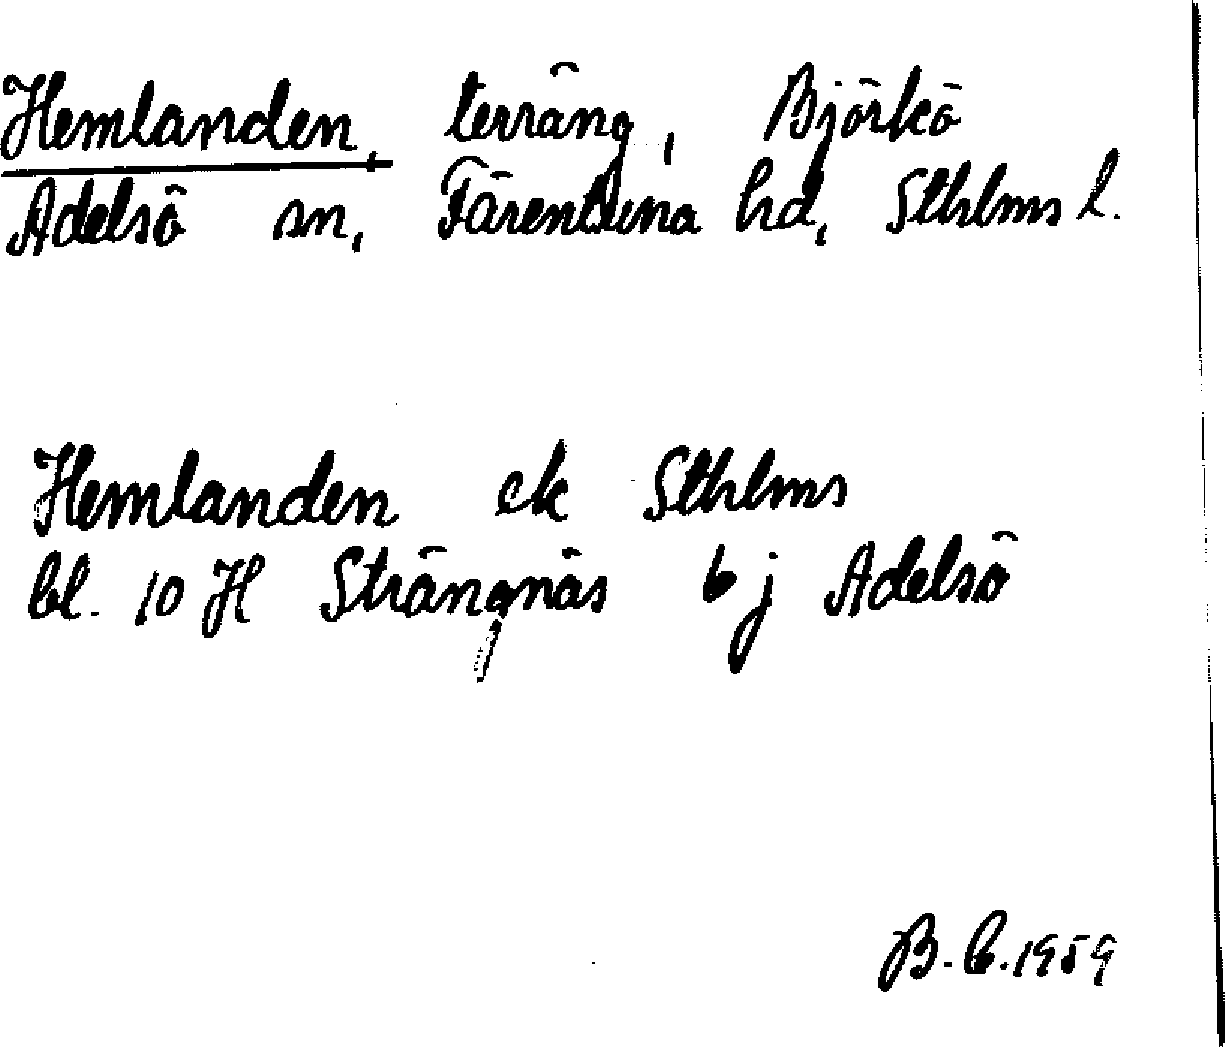 Hemlanden, terräng, Björkö
Adelsö sn, Färentuna hd, Sthlms l.
Hemlanden ek Sthlms
bl. 10 H Strängnäs 6 j Adelsö
B. C. 1959